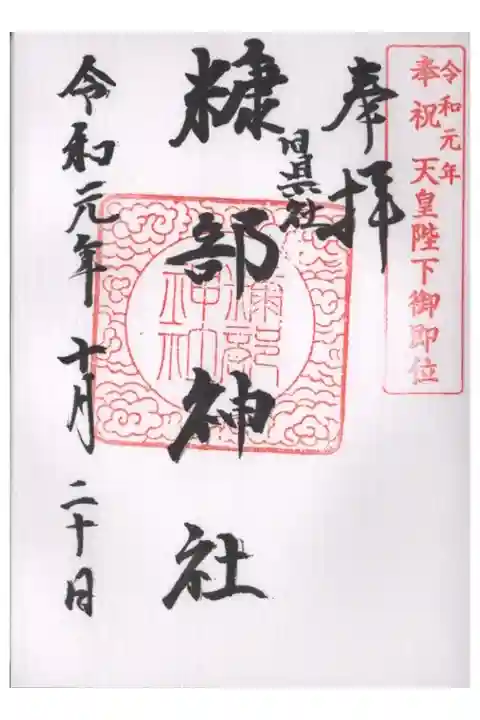 令和元年
奉祝 天皇陛下御即位
奉拝
旧県社
糠部神社
糠部
神社
令和元年 十月 二十日